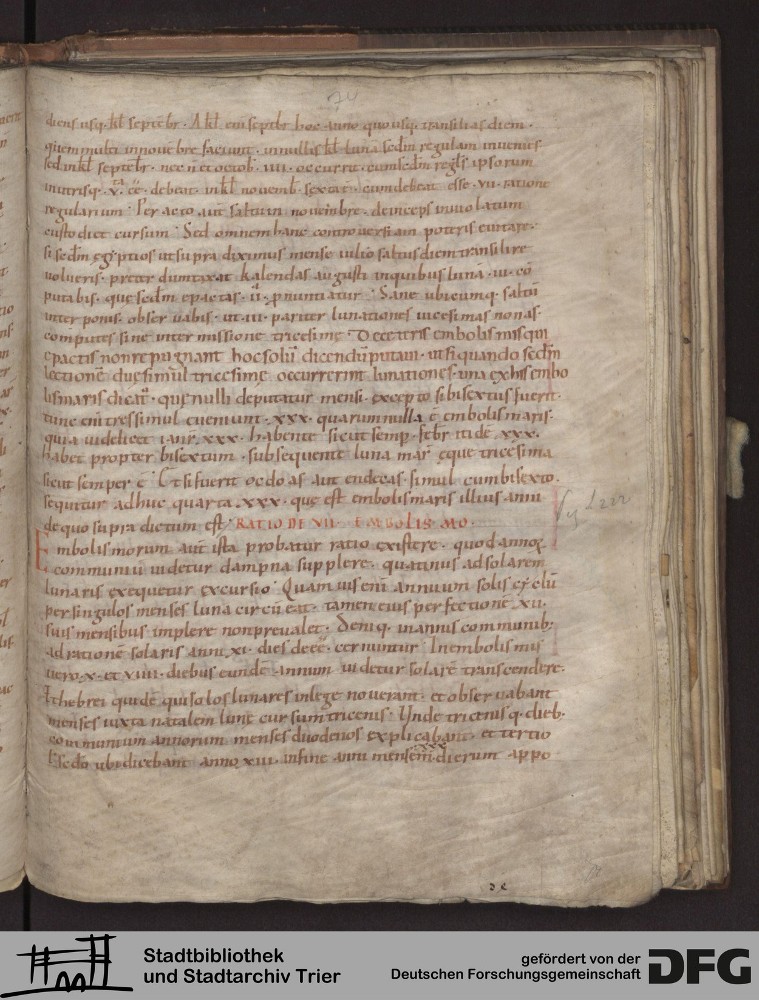 74
diens usq; kl septēbr · A kl eni septbr hoc anno quousq; transilias diem ·
quem multi in novēbre faciunt · in nullis kl luna sedm regulam invenies
sed in kl septēbr · nec n̄ et octob̄ · IIII · occurrit · cum sedm regl̄s ipsorum
· debeat · in kl novemb̄ · sexta · cum debeat esse · VII · ratione
regularium · Peracto aut saltu in novembre · deinceps inviolatum
custodiet cursum · Sed omnem hanc controversiam poteris evitare ·
si sedm egyptios ut supra diximus mense iulio saltus diem transilire
volueris · preter dumtaxat kalendas augusti in quibus lunā · III · cō
putabis · que sedm epactas · II · pnuntiatur · Sane ubicumq; saltū
inter ponis · observabis · ut · III · pariter lunationes vicesimas nonas ·
computes sine inter missione tricesime · De ceteris embolismis qui
epactis non repugnant hoc solū dicendū putavi · ut si quando sedm
lectionē due simul tricesime occurrerint lunationes · una ex his embo
lismaris dicat · que nulli deputatur mensi · excepto si bisextus fuerit ·
tunc eni tres simul eveniunt · XXX · quarum nulla ē embolismaris ·
quia videlicet ianr · XXX · habente sicut semp · febr itidē XXX ·
habet propter bisextum · subsequente luna mar̄ eque tricesima
sicut semper ē · Et si fuerit ocdoas aut endecas · simul cum bisexto ·
sequitur adhuc quarta · XXX · que est embolismaris illius anni
de quo supra dictum est · RATIO DE VII · EMBOLISMO ·
Embolismorum aut ista probatur ratio existere · quod annoꝝ
communiū videtur dampna supplere · quatinus ad solarem
lunaris exequetur excursio · Quamvis eni annuum solis
per singulos menses luna circūeat · tamen eius perfectionē XII ·
suis mensibus implere non prevalet · Deniq; in annis communib;
ad rationē solaris anni · XI · dies deēē cernuntur · In embolismis
vero · X · et VIIII · diebus eundē annum videtur solarē transcendere ·
Hebrei quidē qui solos lunares in lege noverant · et observabant
menses iuxta natalem lune cursum tricenis · Unde tricenis q; dieb;
communium annorum menses duodenos explicabant · et tertio
sedo ubi dicebant anno XIII · in fine anni mensem dierum appo
Stadtbibliothek
und Stadtarchiv Trier
gefördert von der
Deutschen Forschungsgemeinschaft
DFG